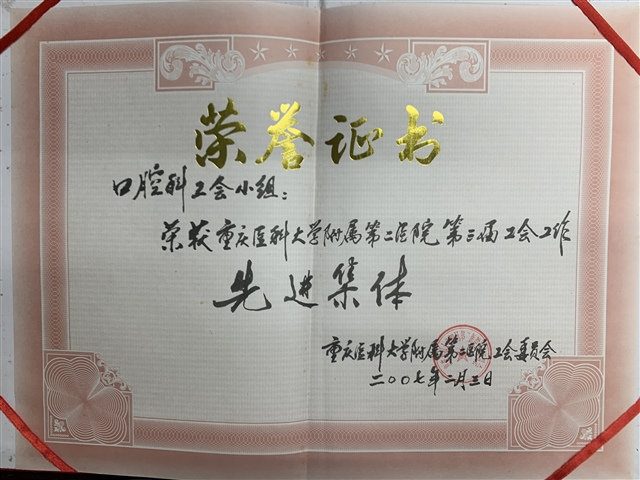 荣誉证书
口腔科工会小组：
荣获重庆医科大学附属第二医院第三届工会工作
先进集体
重庆医科大学附属第二医院工会委员会
二〇〇七年二月三日